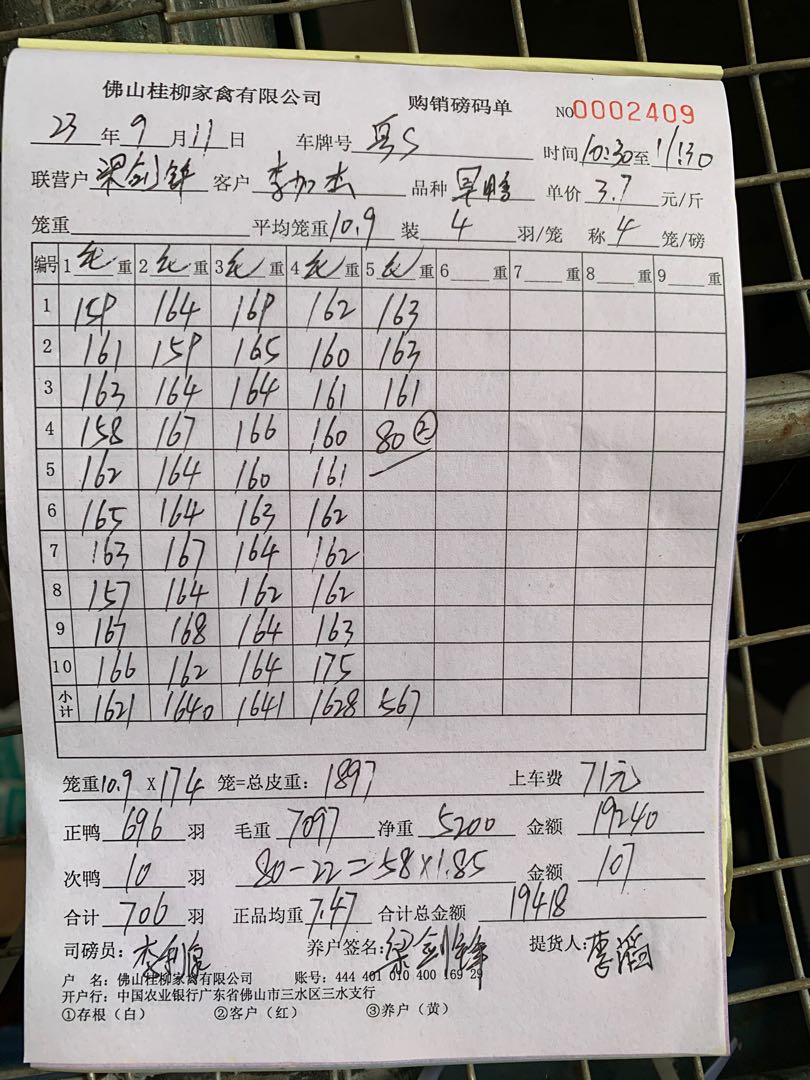 佛山桂柳家禽有限公司 购销磅码单 NO0002409
23年9月11日 车牌号 粤S 时间10:30至11:30
联营户 梁剑锋 客户 李加杰 品种 单价 3.7 元/斤
笼重 平均笼重10.9 装 4 羽/笼 称 4 笼/磅
编号 1毛重 2毛重 3毛重 4毛重 5毛重 6重 7重 8重 9重
1 159 164 169 162 163
2 161 159 165 160 163
3 163 164 164 161 161
4 158 167 166 160 80②
5 162 164 160 161
6 165 164 163 162
7 163 167 164 162
8 157 164 162 162
9 167 168 164 163
10 166 162 164 175
小计 1621 1640 1641 1628 567
笼重10.9 X 174 笼=总皮重: 1897 上车费 71元
正鸭 696 羽 毛重 7097 净重 5200 金额 19240
次鸭 10 羽 80-22=58×1.85 金额 107
合计 706 羽 正品均重 7.47 合计总金额 19418
司磅员: 养户签名: 梁剑锋 提货人: 李滔
户 名: 佛山桂柳家禽有限公司 账号: 444 401 010 400 169 29
开户行: 中国农业银行广东省佛山市三水区三水支行
①存根(白) ②客户(红) ③养户(黄)